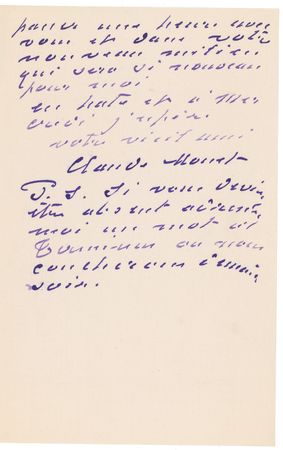 passer une heure avec
vous et dans votre
nouveau milieu
qui sera si nouveau
pour moi
en hate et à Mer
credi j'espère
votre vieil ami
Claude Monet
P. S. Si vous deviez
être absent
moi un mot à
ou nous
coucherons demain
soir.